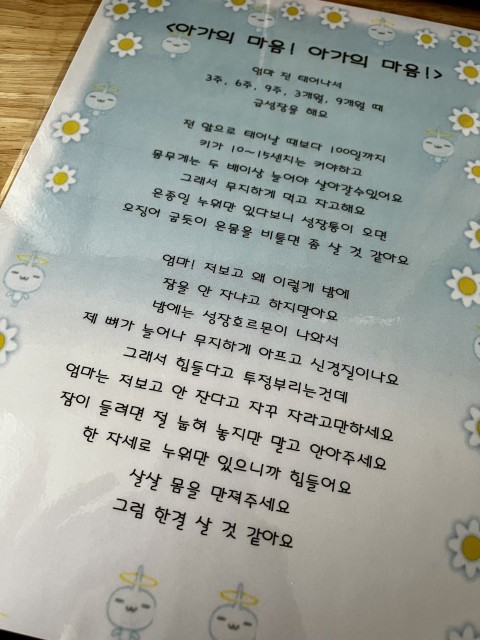 <아가의 마음! 아가의 마음!>
엄마 전 태어나서
3주, 6주, 9주, 3개월, 9개월 때
급성장을 해요
전 앞으로 태어날 때보다 100일까지
키가 10~15센치는 커야하고
몸무게는 두 배이상 늘어야 살아갈수있어요
그래서 무지하게 먹고 자고해요
온종일 누워만 있다보니 성장통이 오면
오징어 굽듯이 온몸을 비틀면 좀 살 것 같아요
엄마! 저보고 왜 이렇게 밤에
잠을 안 자냐고 하지말아요
밤에는 성장호르몬이 나와서
제 뼈가 늘어나 무지하게 아프고 신경질이나요
그래서 힘들다고 투정부리는건데
엄마는 저보고 안 잔다고 자꾸 자라고만하세요
잠이 들려면 절 눕혀 놓지만 말고 안아주세요
한 자세로 누워만 있으니까 힘들어요
살살 몸을 만져주세요
그럼 한결 살 것 같아요